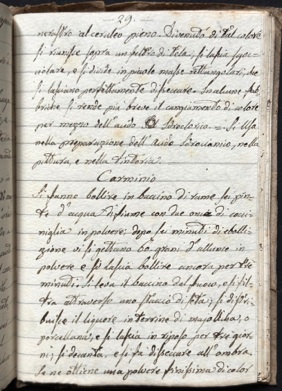 - 29. -
nerastro al ceruleo pieno. Divenuto di tal colore
si riunisce sopra un feltro di tela, si lascia sgoc-
ciolare, e si divide in piccole masse rettangolari, che
si lasciano perfettamente disseccare. In alcune fab-
briche si rende più breve il cangiamento di colore
per mezzo dell'acido Idroclorico = Si usa
nella preparazione dell'Acido Idrocianico, nella
pittura, e nella Tintoria.
Carminio
Si fanno bollire in baccino di rame sei pin-
te d'acqua di fiume con due once di cocci-
niglia in polvere: dopo sei minuti di ebolli-
zione vi si gettano 60. grani d'allume in
polvere e si lascia bollire ancora per tre
minuti. Si leva il baccino dal fuoco, e si fil-
tra attraverso uno staccio di seta; si distri-
buisce il liquore in terrine di majollica, o
porcellana, e si lascia in riposo per tre gior-
ni; si decanta, e si fa disseccare all'ombra.
Se ne ottiene una polvere finissima di color